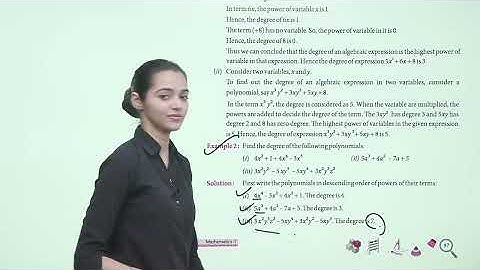 In term 6x, the power of variable x is 1.
Hence, the degree of 6x is 1.
The term (+8) has no variable. So, the power of variable in it is 0.
Hence, the degree of 8 is 0.
Thus we can conclude that the degree of an algebraic expression is the highest power of
variable in that expression. Hence the degree of expression 5x³ + 6x + 8 is 3
(ii) Consider two variables, x and y.
To find out the degree of an algebraic expression in two variables, consider a
polynomial, say x³ y² + 3xy² + 5xy + 8.
In the term x³ y², the degree is considered as 5. When the variable are multiplied, the
powers are added to decide the degree of the term. The 3xy² has degree 3 and 5xy has
degree 2 and 8 has zero degree. The highest power of variables in the given expression
is 5. Hence, the degree of expression x³y² + 3xy² + 5xy + 8 is 5.
Example 2: Find the degree of the following polynomials:
(ii) 5a³ + 4a² - 7a + 5
Solution: First write the polynomials in descending order of powers of their terms:
The degree is 6
(ii) 5a³ + 4a² - 7a + 5. The degree is 3.
The degree is 7.
Mathematics-7
97